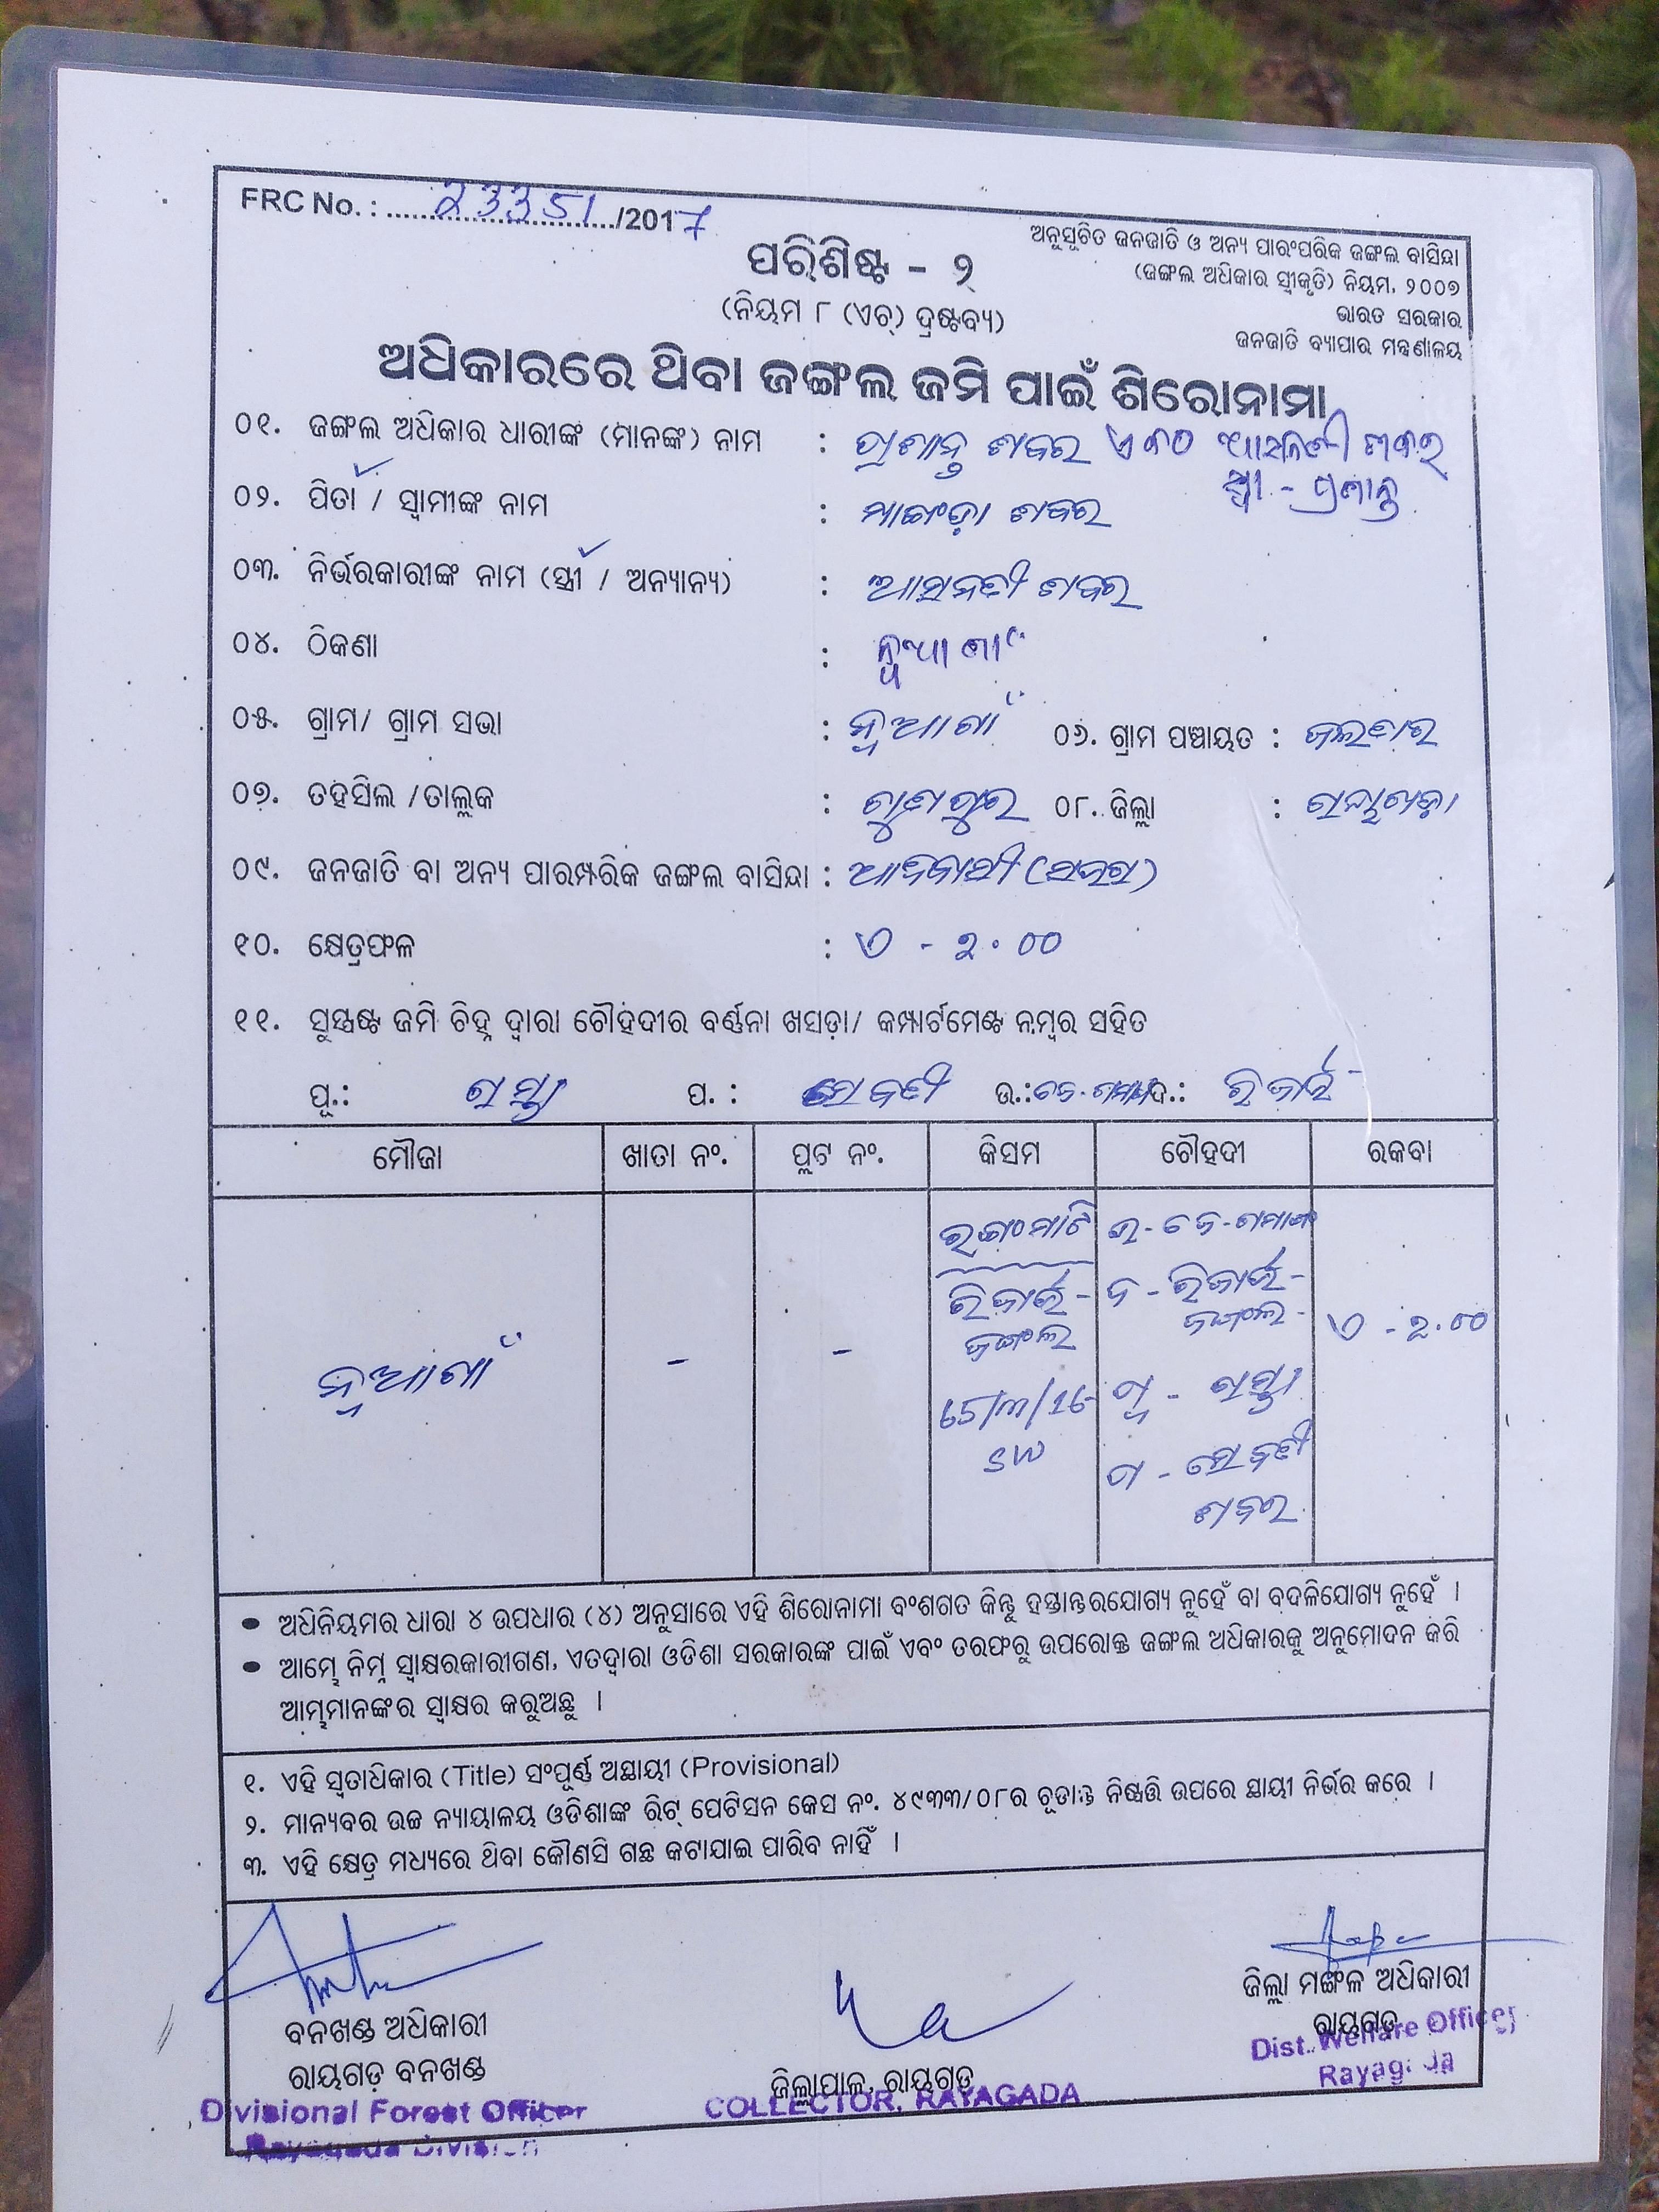 FRC No. : 23351/2017
ଅନୁସୂଚିତ ଜନଜାତି ଓ ଅନ୍ୟ ପାରଂପରିକ ଜଙ୍ଗଲ ବାସିନ୍ଦା
(ଜଙ୍ଗଲ ଅଧିକାର ସ୍ୱୀକୃତି) ନିୟମ, ୨୦୦୭
ଭାରତ ସରକାର
ଜନଜାତି ବ୍ୟାପାର ମନ୍ତ୍ରଣାଳୟ
ପରିଶିଷ୍ଟ - ୨
(ନିୟମ ୮ (ଏଚ୍) ଦ୍ରଷ୍ଟବ୍ୟ)
ଅଧିକାରରେ ଥିବା ଜଙ୍ଗଲ ଜମି ପାଇଁ ଶିରୋନାମା
୦୧. ଜଙ୍ଗଲ ଅଧିକାର ଧାରୀଙ୍କ (ମାନଙ୍କ) ନାମ : ପ୍ରଶାନ୍ତ ଶବର
ସ୍ତ୍ରୀ - ପ୍ରଶାନ୍ତ
୦୨. ପିତା / ସ୍ୱାମୀଙ୍କ ନାମ : ଶବର
୦୩. ନିର୍ଭରକାରୀଙ୍କ ନାମ (ସ୍ତ୍ରୀ / ଅନ୍ୟାନ୍ୟ) : ଶବର
୦୪. ଠିକଣା : ନୂଆଗାଁ
୦୫. ଗ୍ରାମ/ ଗ୍ରାମ ସଭା : ନୂଆଗାଁ ୦୬. ଗ୍ରାମ ପଞ୍ଚାୟତ :
୦୭. ତହସିଲ /ତାଲୁକ : ଗୁଣୁପୁର ୦୮. ଜିଲ୍ଲା : ରାୟଗଡ଼ା
୦୯. ଜନଜାତି ବା ଅନ୍ୟ ପାରମ୍ପରିକ ଜଙ୍ଗଲ ବାସିନ୍ଦା : ଆଦିବାସୀ (ସଉରା)
୧୦. କ୍ଷେତ୍ରଫଳ : ଏ - ୨.୦୦
୧୧. ସୁସ୍ପଷ୍ଟ ଜମି ଚିହ୍ନ ଦ୍ୱାରା ଚୌହଦୀର ବର୍ଣ୍ଣନା ଖସଡ଼ା/ କମ୍ପାର୍ଟମେଣ୍ଟ ନମ୍ବର ସହିତ
ପୂ.: ରାସ୍ତା ପ. : ରେବତୀ ଉ.: ଦ.: ରିଜାର୍ଭ
ମୌଜା ଖାତା ନଂ. ପ୍ଲଟ ନଂ. କିସମ ଚୌହଦୀ ରକବା
ନୂଆଗାଁ - - ଏ - ୨.୦୦
ରିଜାର୍ଭ ଦ - ରିଜାର୍ଭ
ଜଙ୍ଗଲ ଜଙ୍ଗଲ
65/m/16 ପୂ - ରାସ୍ତା
SW ପ - ରେବତୀ
ଶବର
• ଅଧିନିୟମର ଧାରା ୪ ଉପଧାରା (୪) ଅନୁସାରେ ଏହି ଶିରୋନାମା ବଂଶଗତ କିନ୍ତୁ ହସ୍ତାନ୍ତରଯୋଗ୍ୟ ନୁହେଁ ବା ବଦଳିଯୋଗ୍ୟ ନୁହେଁ ।
• ଆମ୍ଭେ ନିମ୍ନ ସ୍ୱାକ୍ଷରକାରୀଗଣ, ଏତଦ୍ୱାରା ଓଡିଶା ସରକାରଙ୍କ ପାଇଁ ଏବଂ ତରଫରୁ ଉପରୋକ୍ତ ଜଙ୍ଗଲ ଅଧିକାରକୁ ଅନୁମୋଦନ କରି
ଆମ୍ଭମାନଙ୍କର ସ୍ୱାକ୍ଷର କରୁଅଛୁ ।
୧. ଏହି ସ୍ୱତାଧିକାର (Title) ସଂପୂର୍ଣ୍ଣ ଅସ୍ଥାୟୀ (Provisional)
୨. ମାନ୍ୟବର ଉଚ୍ଚ ନ୍ୟାୟାଳୟ ଓଡିଶାଙ୍କ ରିଟ୍ ପେଟିସନ କେସ ନଂ. ୪୯୩୩/୦୮ର ଚୂଡାନ୍ତ ନିଷ୍ପତ୍ତି ଉପରେ ସ୍ଥାୟୀ ନିର୍ଭର କରେ ।
୩. ଏହି କ୍ଷେତ୍ର ମଧ୍ୟରେ ଥିବା କୌଣସି ଗଛ କଟାଯାଇ ପାରିବ ନାହିଁ ।
ବନଖଣ୍ଡ ଅଧିକାରୀ
ରାୟଗଡ଼ ବନଖଣ୍ଡ
Divisional Forest Officer
Rayagada Division
ଜିଲ୍ଲାପାଳ, ରାୟଗଡ଼
COLLECTOR, RAYAGADA
ଜିଲ୍ଲା ମଙ୍ଗଳ ଅଧିକାରୀ
ରାୟଗଡ଼
Dist. Welfare Officer
Rayagada